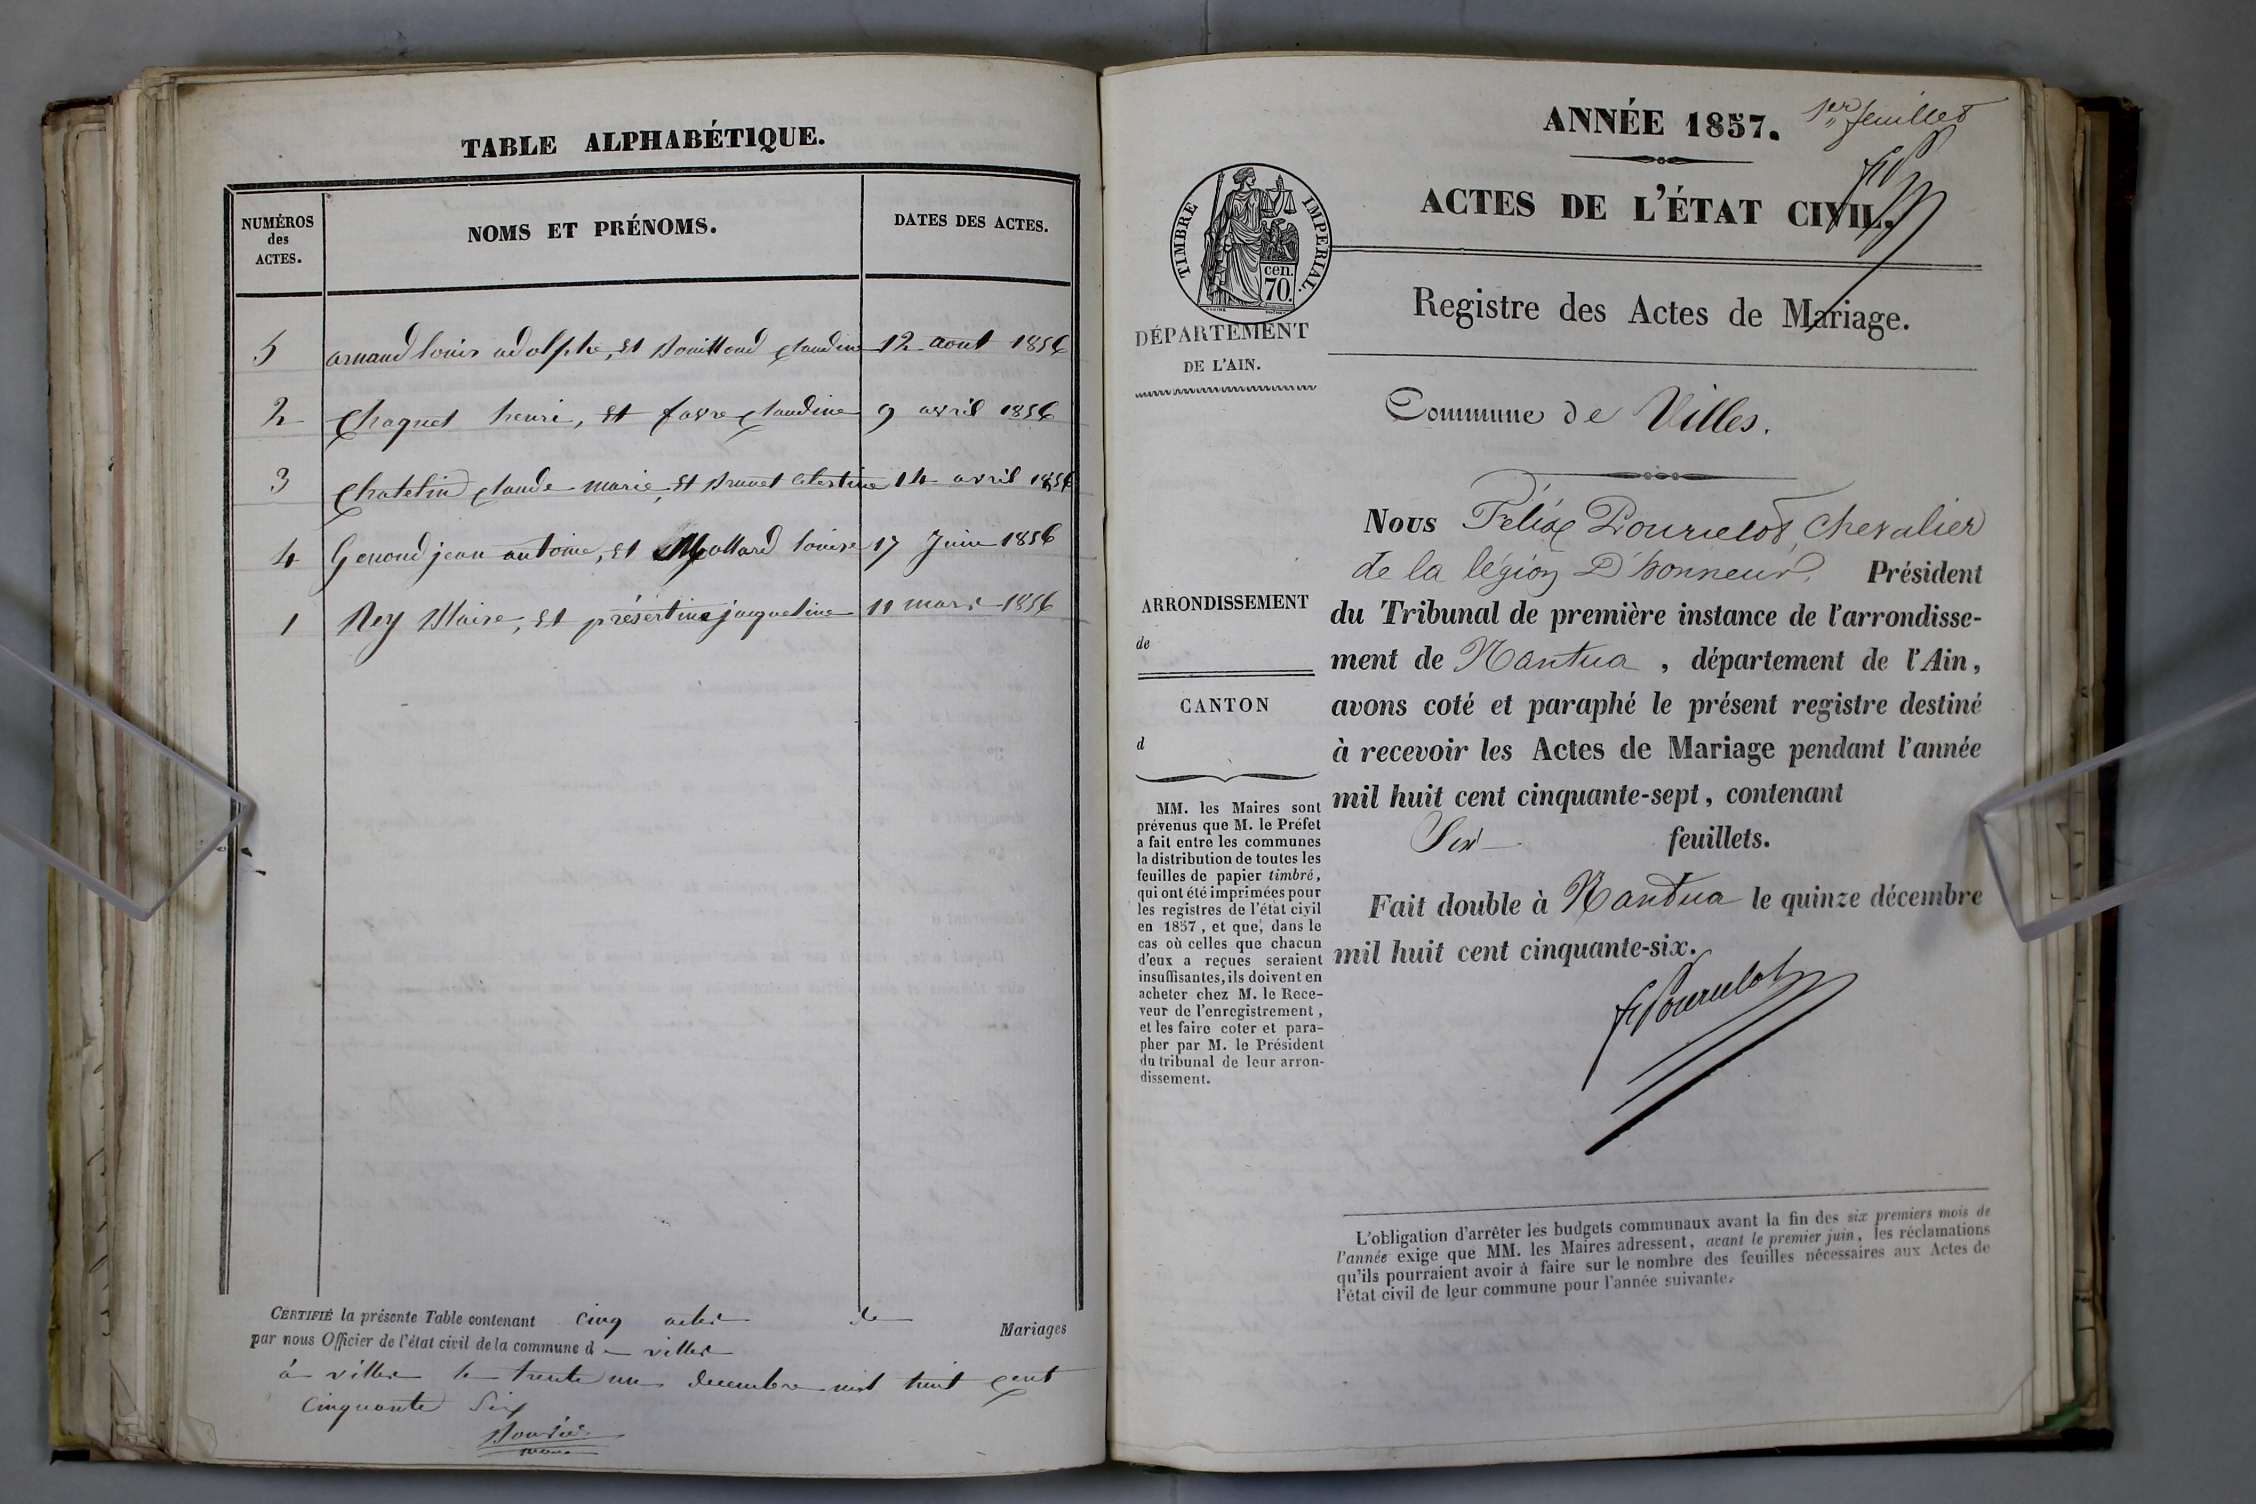 TABLE ALPHABÉTIQUE.
NUMÉROS
des
ACTES.
NOMS ET PRÉNOMS.
DATES DES ACTES.
5 arnaud louis adolphe, et Bouilloud claudine 12 aout 1856
2 Chaquet henri, et favre claudine 9 avril 1856
3 Chatelin claude marie, et Brunet Celestine 14 avril 1856
4 Genond jean antoine, et Mollard louise 17 Juin 1856
1 Rey Blaise, et présertine jacqueline 11 mars 1856
CERTIFIÉ la présente Table contenant cinq actes de Mariages
par nous Officier de l'état civil de la commune d e villes
à villes le trente un decembre mil huit cent
cinquante Six
1er feuillet
ANNÉE 1857.
ACTES DE L'ÉTAT CIVIL.
TIMBRE IMPERIAL.
cen.
70.
DÉPARTEMENT
DE L'AIN.
Registre des Actes de Mariage.
Commune de Villes.
Nous Félix Pourcelot, Chevalier
de la légion D'honneur, Président
du Tribunal de première instance de l'arrondisse-
ment de Nantua, département de l'Ain,
avons coté et paraphé le présent registre destiné
à recevoir les Actes de Mariage pendant l'année
mil huit cent cinquante-sept, contenant
Six feuillets.
Fait double à Nantua le quinze décembre
mil huit cent cinquante-six.
FPourcelot
ARRONDISSEMENT
de
CANTON
d
MM. les Maires sont
prévenus que M. le Préfet
a fait entre les communes
la distribution de toutes les
feuilles de papier timbré,
qui ont été imprimées pour
les registres de l'état civil
en 1857, et que, dans le
cas où celles que chacun
d'eux a reçues seraient
insuffisantes, ils doivent en
acheter chez M. le Rece-
veur de l'enregistrement,
et les faire coter et para-
pher par M. le Président
du tribunal de leur arron-
dissement.
L'obligation d'arrêter les budgets communaux avant la fin des six premiers mois de
l'année exige que MM. les Maires adressent, avant le premier juin, les réclamations
qu'ils pourraient avoir à faire sur le nombre des feuilles nécessaires aux Actes de
l'état civil de leur commune pour l'année suivante.